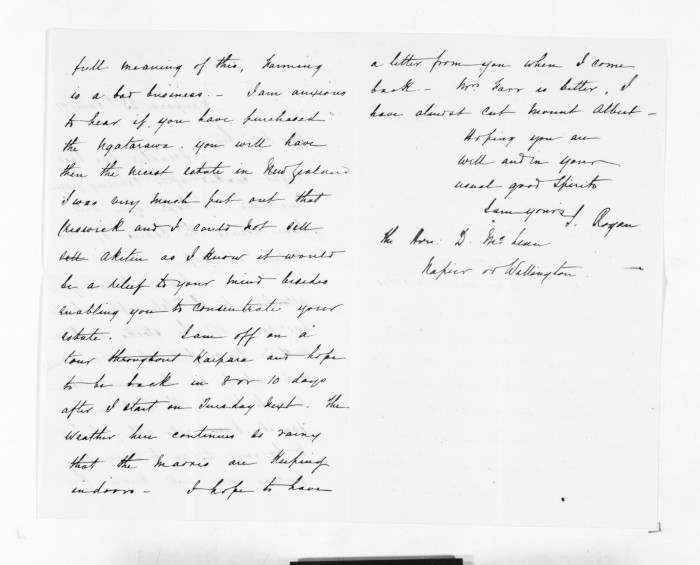 full meaning of this, Farming
is a bad business. - I am anxious
to hear if you have purchased
the Ngatarawa. you will have
then the nicest estate in New Zealand
I was very much put out that
Creswick and I could not sell
sell Akitio as I know it would
be a relief to your mind besides
enabling you to concentrate your
estate. I am off on a
tour throughout Kaipara and hope
to be back in 8 or 10 days
after I start on Tuesday next. The
weather here continues so rainy
that the Maoris are keeping
indoors - I hope to have
a letter from you when I come
back - Mrs Farr is better, I
have almost cut Mount Albert -
Hoping you are
well and in your
usual good Spirits
I am yours J. Rogan
The Hon: D. McLean
Napier or Wellington. -